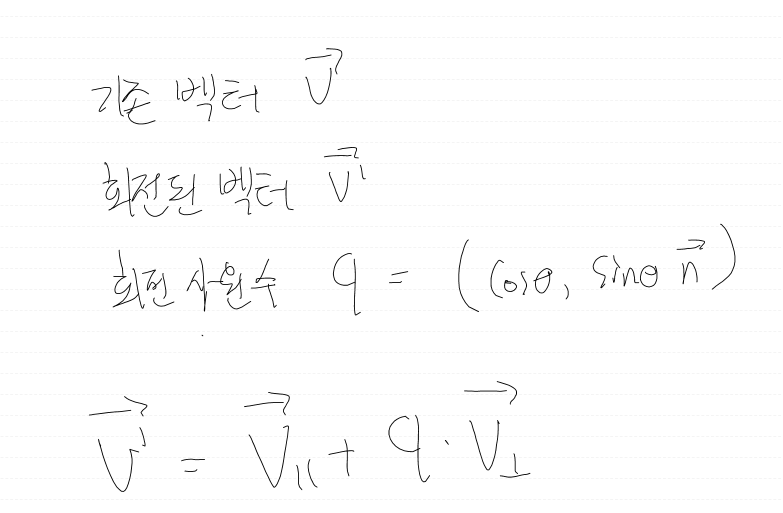 기존 벡터 $\vec{v}$
회전된 벡터 $\vec{v}'$
회전 사원수 $q = (\cos\theta, \sin\theta\, \vec{n})$
$\vec{v}' = \vec{v}_{\parallel} + q \cdot \vec{v}_{\perp}$